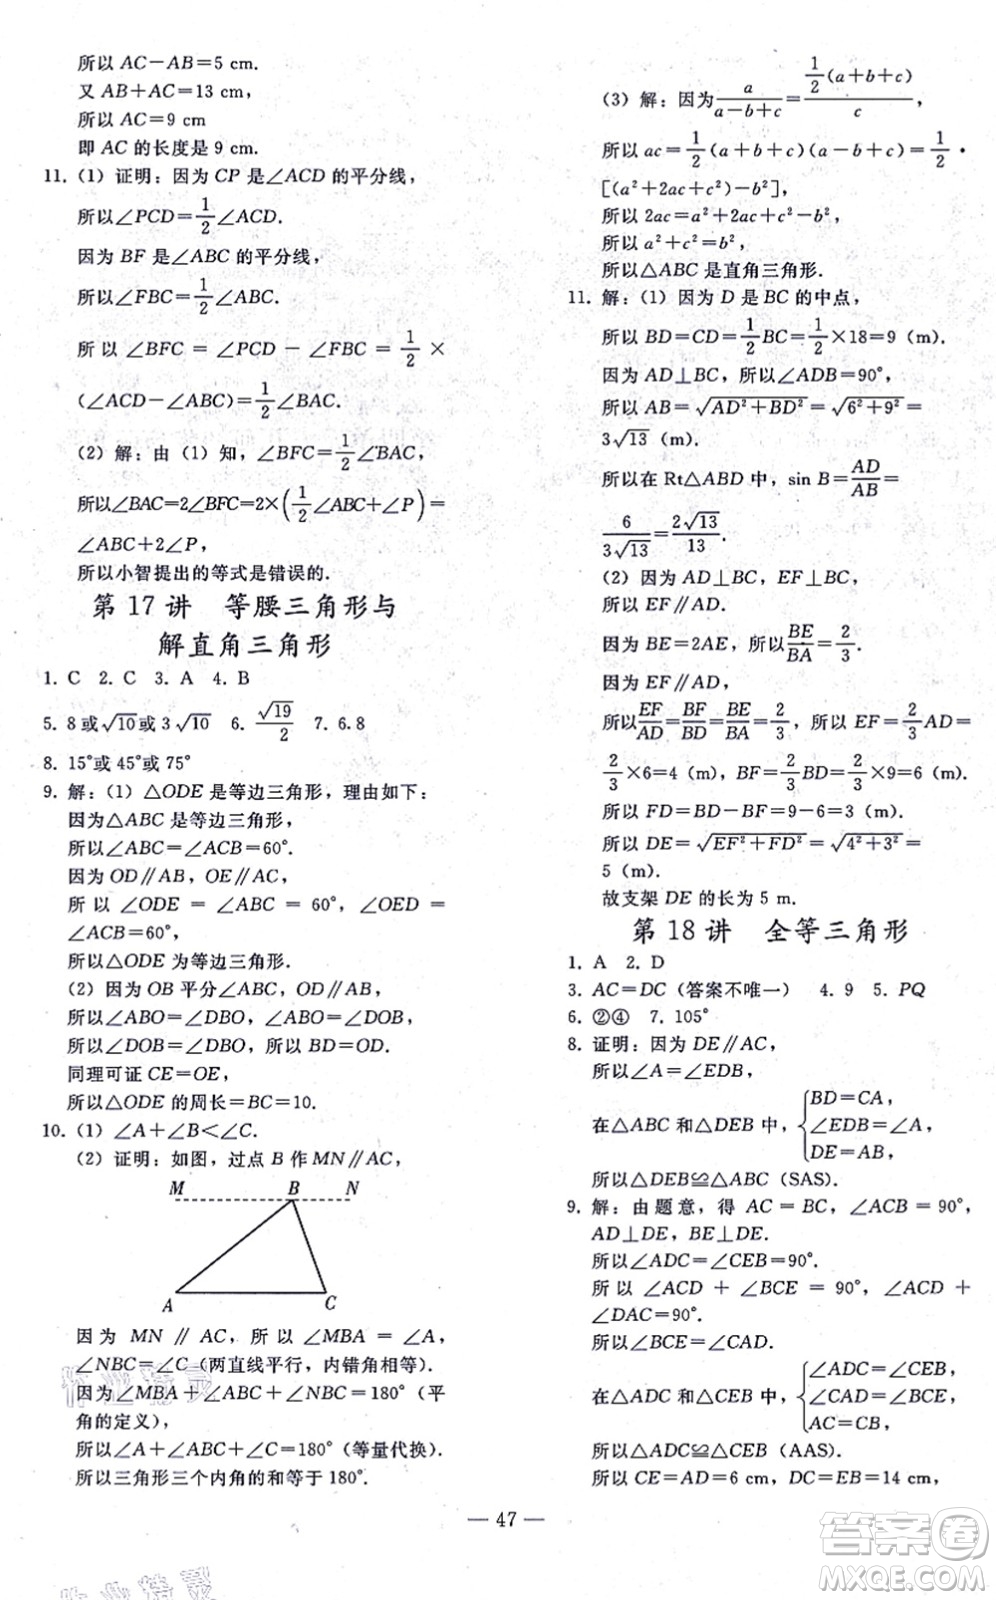 所以 AC－AB＝5 cm.
又 AB＋AC＝13 cm,
所以 AC＝9 cm
即 AC 的长度是 9 cm.
11.（1）证明：因为 CP 是∠ACD 的平分线，
所以∠PCD＝1/2∠ACD.
因为 BF 是∠ABC 的平分线，
所以∠FBC＝1/2∠ABC.
所以 ∠BFC ＝ ∠PCD － ∠FBC ＝ 1/2 ×
(∠ACD－∠ABC)＝1/2∠BAC.
（2）解：由（1）知，∠BFC＝1/2∠BAC,
所以∠BAC＝2∠BFC＝2×(1/2∠ABC＋∠P)＝
∠ABC＋2∠P,
所以小智提出的等式是错误的.
第 17 讲　等腰三角形与
解直角三角形
1. C　2. C　3. A　4. B
5. 8 或√10或 3√10　6. √19/2　7. 6.8
8. 15°或 45°或 75°
9. 解：（1）△ODE 是等边三角形，理由如下：
因为△ABC 是等边三角形，
所以∠ABC＝∠ACB＝60°.
因为 OD∥AB，OE∥AC,
所以 ∠ODE ＝ ∠ABC ＝ 60°，∠OED ＝
∠ACB＝60°,
所以△ODE 为等边三角形.
（2）因为 OB 平分∠ABC，OD∥AB,
所以∠ABO＝∠DBO，∠ABO＝∠DOB,
所以∠DOB＝∠DBO，所以 BD＝OD.
同理可证 CE＝OE,
所以△ODE 的周长＝BC＝10.
10.（1）∠A＋∠B＜∠C.
（2）证明：如图，过点 B 作 MN∥AC,
M　B　N
A　C
因为 MN ∥ AC，所以 ∠MBA ＝ ∠A,
∠NBC＝∠C（两直线平行，内错角相等）.
因为∠MBA＋∠ABC＋∠NBC＝180°（平
角的定义），
所以∠A＋∠ABC＋∠C＝180°（等量代换）.
所以三角形三个内角的和等于 180°.
（3）解：因为a/(a－b＋c)＝1/2(a＋b＋c)/c,
所以 ac＝1/2(a＋b＋c)(a－b＋c)＝1/2·
[(a²＋2ac＋c²)－b²],
所以 2ac＝a²＋2ac＋c²－b²,
所以 a²＋c²＝b²,
所以△ABC 是直角三角形.
11. 解：（1）因为 D 是 BC 的中点，
所以 BD＝CD＝1/2BC＝1/2×18＝9（m）.
因为 AD⊥BC，所以∠ADB＝90°,
所以 AB＝√(AD²＋BD²)＝√(6²＋9²)＝
3√13（m）.
所以在 Rt△ABD 中，sin B＝AD/AB＝
6/(3√13)＝2√13/13.
（2）因为 AD⊥BC，EF⊥BC,
所以 EF∥AD.
因为 BE＝2AE，所以BE/BA＝2/3.
因为 EF∥AD,
所以EF/AD＝BF/BD＝BE/BA＝2/3，所以 EF＝2/3AD＝
2/3×6＝4（m），BF＝2/3BD＝2/3×9＝6（m）.
所以 FD＝BD－BF＝9－6＝3（m）.
所以 DE＝√(EF²＋FD²)＝√(4²＋3²)＝
5（m）.
故支架 DE 的长为 5 m.
第 18 讲　全等三角形
1. A　2. D
3. AC＝DC（答案不唯一）　4. 9　5. PQ
6. ②④　7. 105°
8. 证明：因为 DE∥AC,
所以∠A＝∠EDB,
在△ABC 和△DEB 中，{BD＝CA, ∠EDB＝∠A, DE＝AB,
所以△DEB≌△ABC（SAS）.
9. 解：由题意，得 AC ＝ BC，∠ACB ＝ 90°,
AD⊥DE，BE⊥DE.
所以∠ADC＝∠CEB＝90°.
所以 ∠ACD ＋ ∠BCE ＝ 90°，∠ACD ＋
∠DAC＝90°.
所以∠BCE＝∠CAD.
在△ADC 和△CEB 中，{∠ADC＝∠CEB, ∠CAD＝∠BCE, AC＝CB,
所以△ADC≌△CEB（AAS）.
所以 CE＝AD＝6 cm，DC＝EB＝14 cm,
— 47 —
答案卷
MXQE.COM